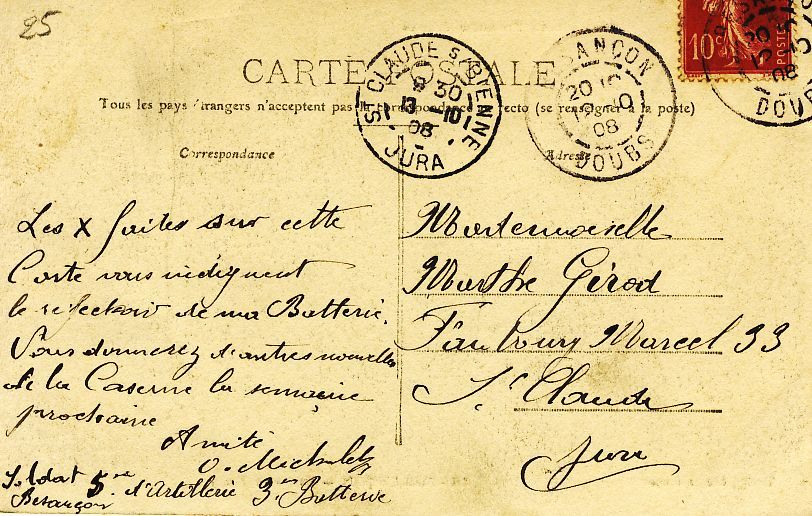 25
CARTE POSTALE
Tous les pays étrangers n'acceptent pas la correspondance au recto (se renseigner à la poste)
Correspondance
Adresse
ST CLAUDE S BIENNE
8 30
13 -10
08
JURA
BESANÇON
20
08
DOUBS
10c
POSTES
20
08
DOUBS
Les X faites sur cette
Carte vous indiquent
le refectoir de ma Batterie.
Vous donnerez d'autres nouvelles
de la Caserne la semaine
prochaine
Amitié
Soldat 5me d'Artillerie 3me Batterie
Besançon
Mademoiselle
Marthe Girod
Faubourg Marcel 33
St Claude
Jura